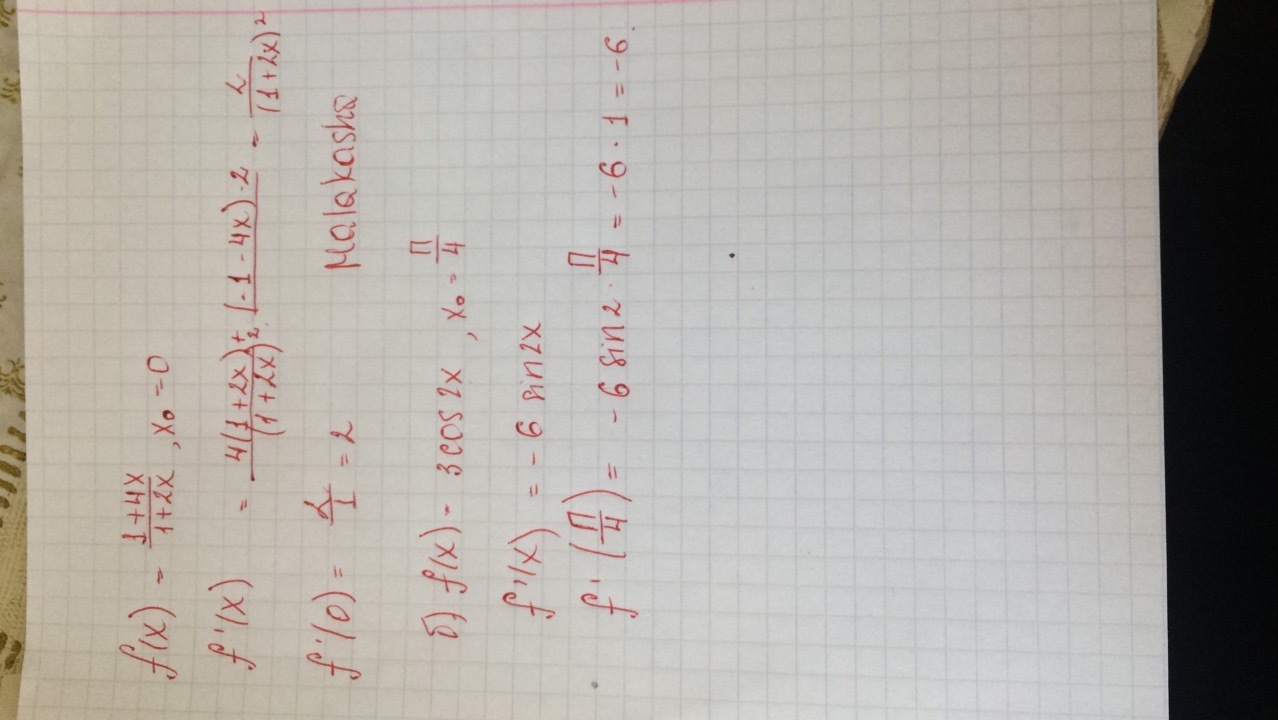 f(x) = \frac{1+4x}{1+2x}, x₀ = 0
f'(x) = \frac{4(1+2x) + (-1-4x)·2}{(1+2x)^2} = \frac{2}{(1+2x)^2}
f'(0) = \frac{2}{1} = 2
Malakasha
б) f(x) - 3cos2x, x₀ = \frac{П}{4}
f'(x) = -6 sin2x
f'(\frac{П}{4}) = -6 sin2·\frac{П}{4} = -6·1 = -6.